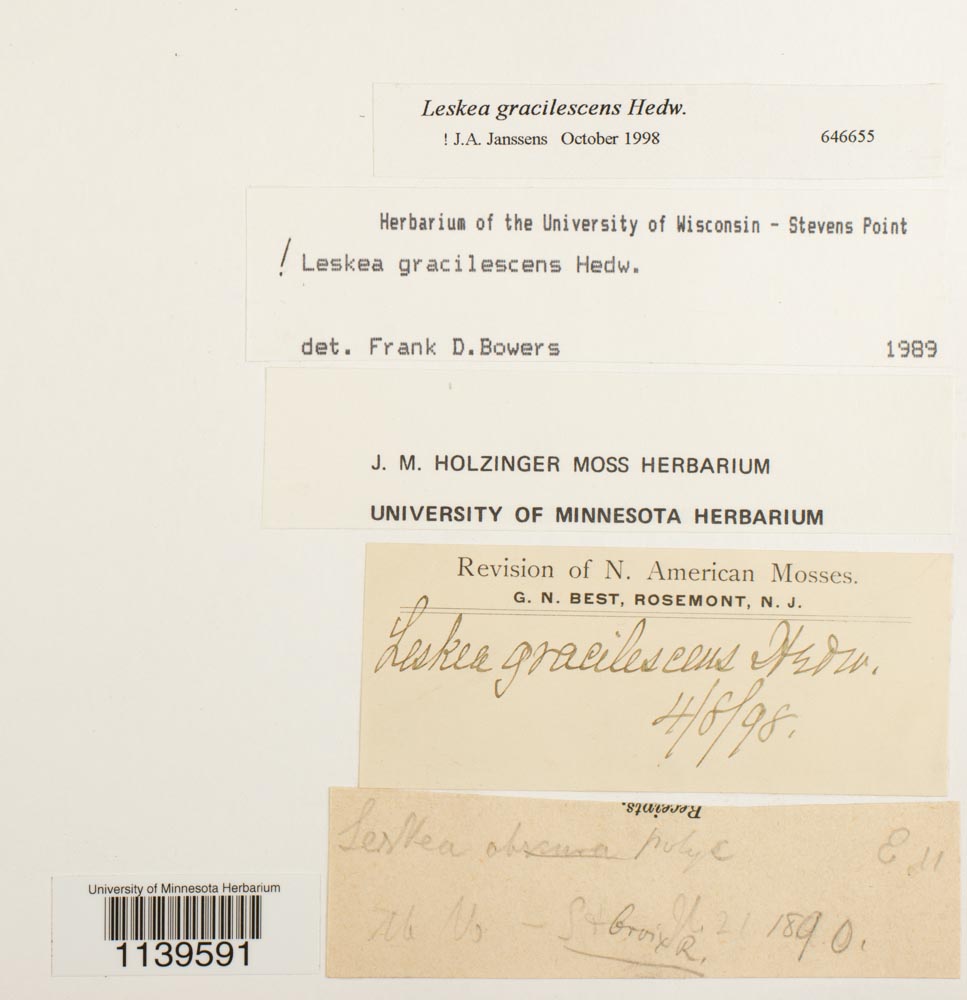 Leskea gracilescens Hedw.
! J.A. Janssens October 1998 646655
Herbarium of the University of Wisconsin - Stevens Point
! Leskea gracilescens Hedw.
det. Frank D.Bowers 1989
J. M. HOLZINGER MOSS HERBARIUM
UNIVERSITY OF MINNESOTA HERBARIUM
Revision of N. American Mosses.
G. N. BEST, ROSEMONT, N. J.
Leskea gracilescens Hedw.
4/8/98.
Receipts.
Leskea obscura polyc
St Croix R. 21 1890.
University of Minnesota Herbarium
1139591